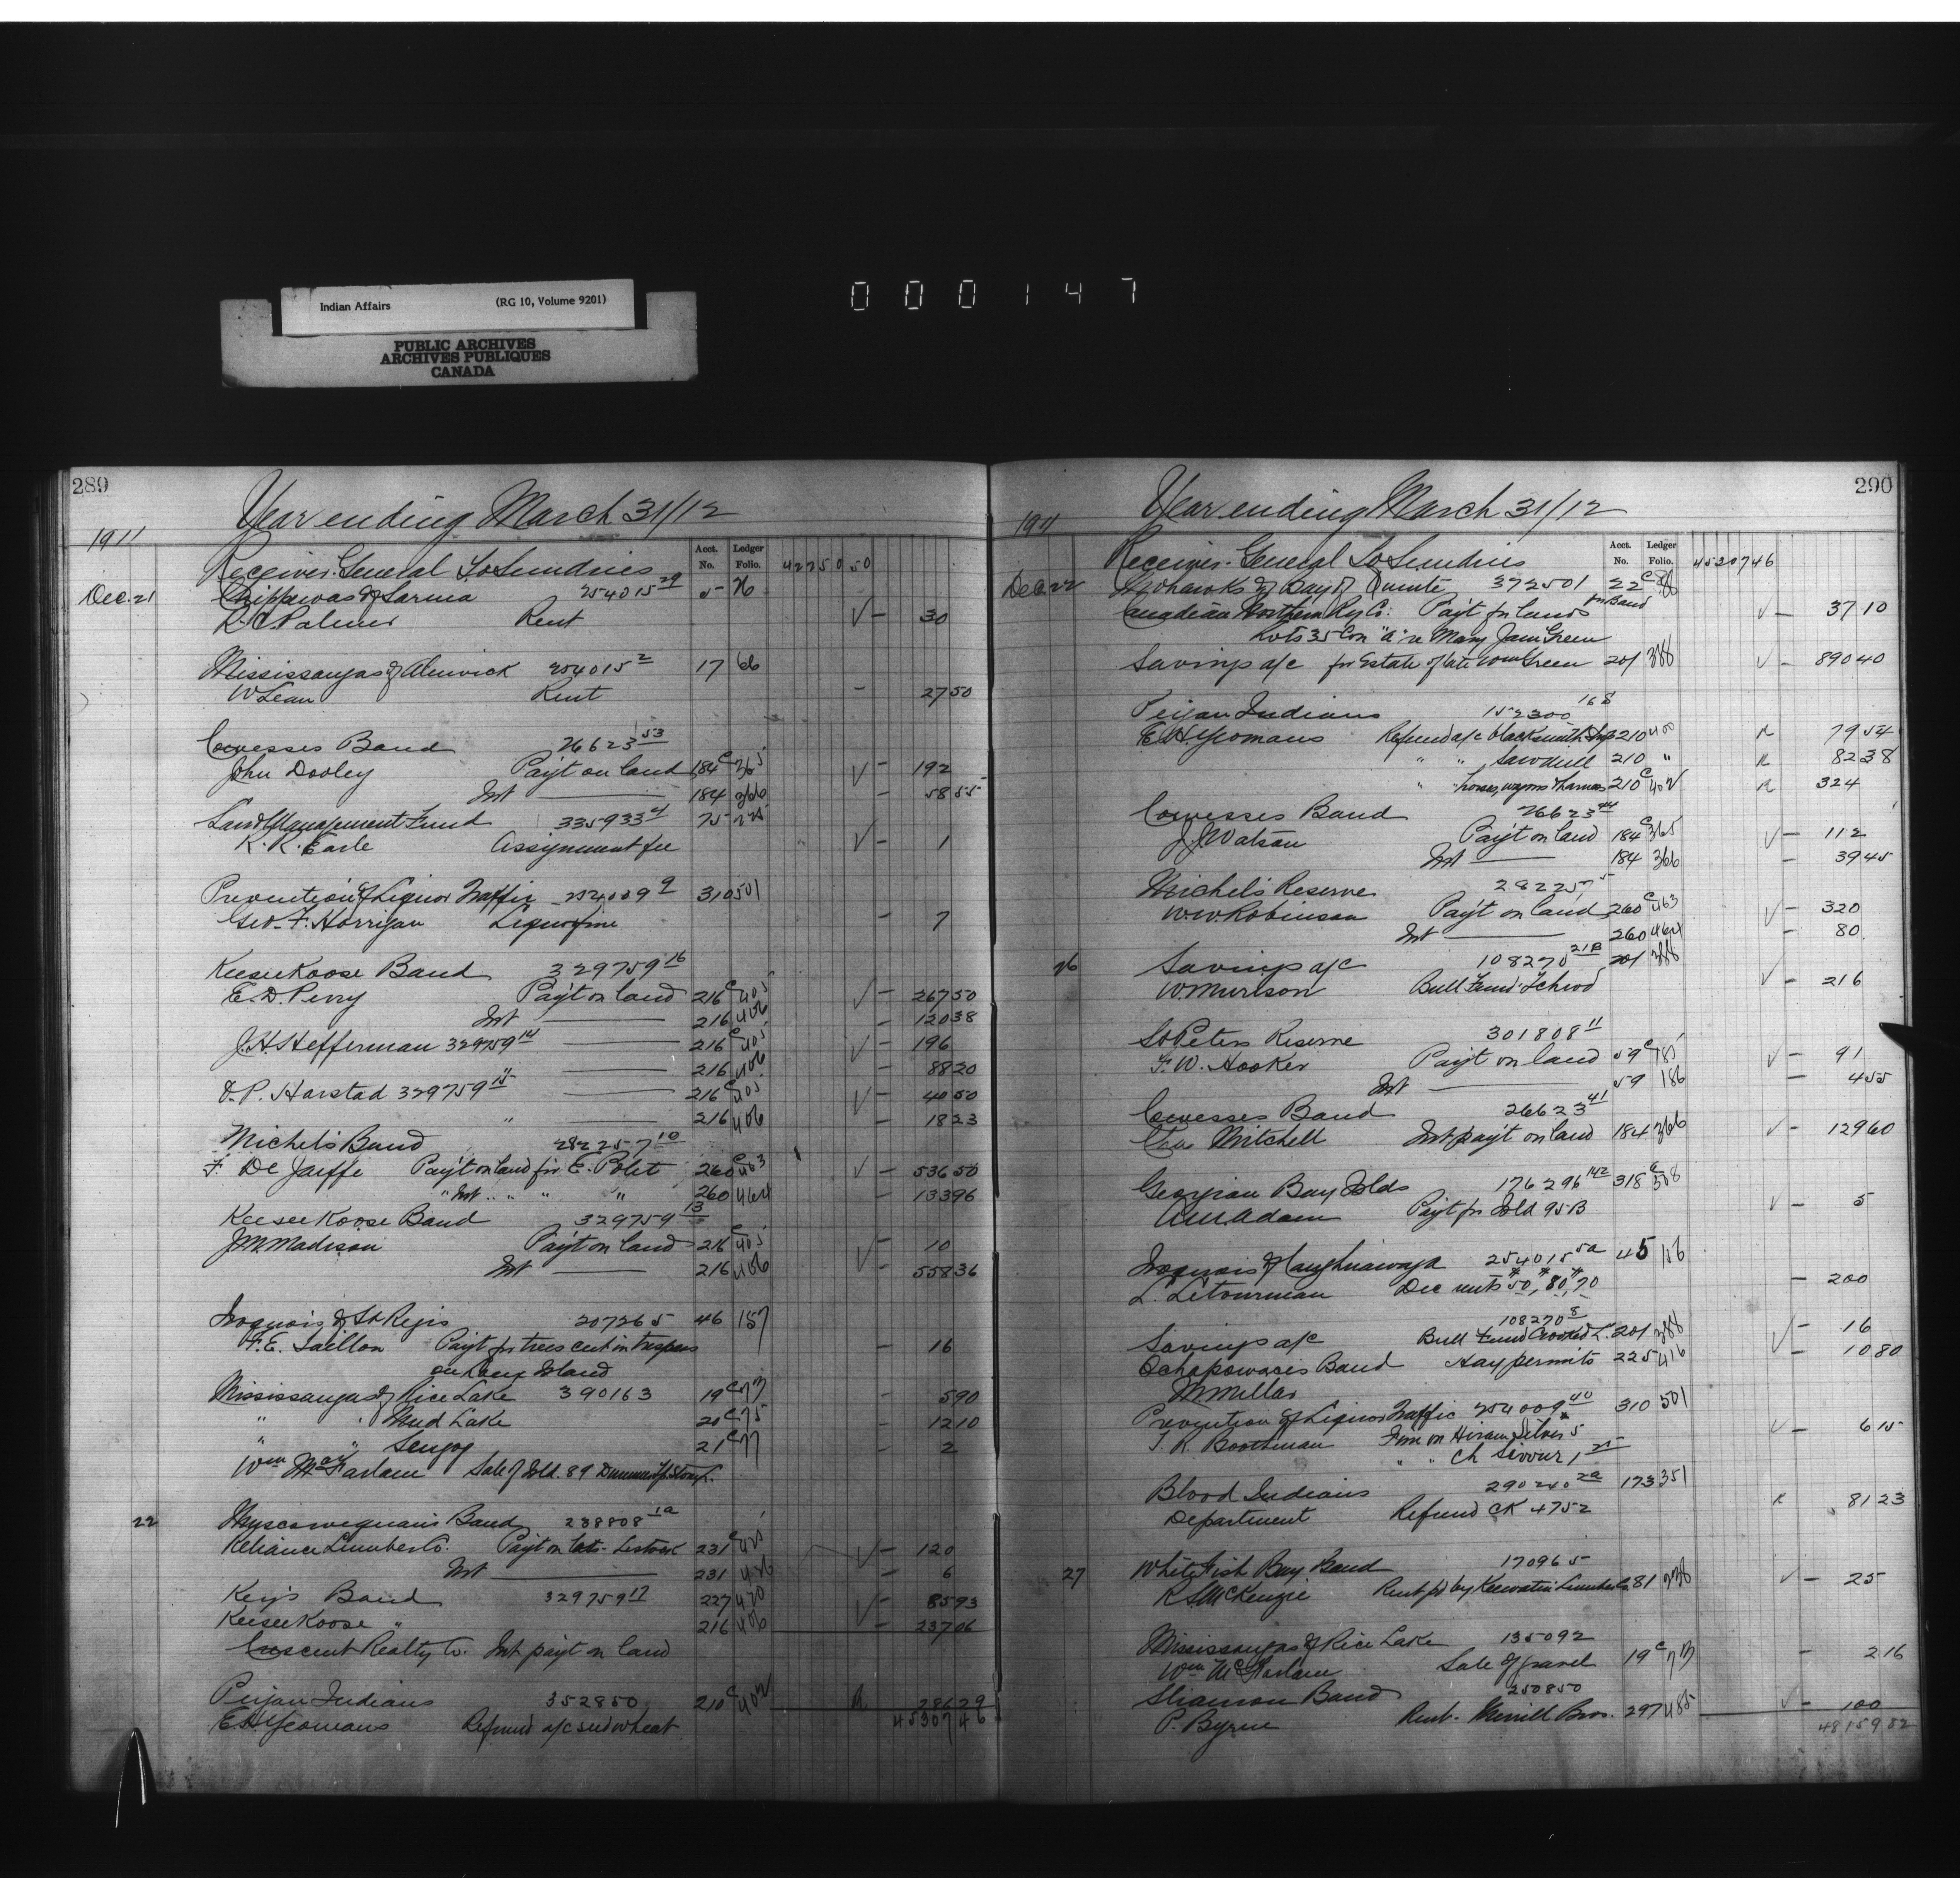 Indian Affairs (RG 10, Volume 9201)
PUBLIC ARCHIVES
ARCHIVES PUBLIQUES
CANADA
000147
289
Year ending March 31/12
1911
Acct. No. Ledger Folio.
Receiver General To Sundries 42250 50
Dec. 21 Chippewas of Sarnia 254015 29 5 26
R.C. Palmer Rent √ - 30
Mississaugas of Alnwick 254015 2 17 66
W Lean Rent - 27 50
Cowesses Band 26623 53
John Dooley Pay't on land 184 c 365 √ - 192
Int 184 366 - 58 55
Land Management Fund 335933 4 75
K. K. Earle Assignment fee √ - 1
Prevention of Liquor Traffic 254009 9 310 501
Geo. F. Horrigan Liquor fine - 7
Keesee Koose Band 329759 16
E. D. Perry Pay't on land 216 c 405 √ - 267 50
Int 216 406 - 120 38
J. H. Hefferman 329759 14 216 c 405 √ - 196
216 406 - 88 20
O. P. Harstad 329759 15 216 c 405 √ - 40 50
" 216 406 - 18 23
Michel's Band 282257 10
F. De Jaiffe Pay't on land for E. Polet 260 c 463 √ - 536 50
" Int " " " 260 464 - 133 96
Keesee Koose Band 329759 13
J. M. Madison Pay't on land 216 c 405 √ - 10
Int 216 406 - 558 36
Iroquois of St Regis 207265 46 157
F. E. Taillon Pay't for trees cut in trespass - 16
on Island
Mississaugas of Rice Lake 390163 19 c 73 - 5 90
" " Mud Lake 20 c 75 - 12 10
" " Scugog 21 c 77 - 2
Wm McFarlane Sale of Isld. 89 Dummer
22 Band 238808 1a
Reliance Lumber Co. Pay't on lots - Lestock 231 c 425 √ - 120
Int 231 426 - 6
Key's Band 329759 17 227 420 √ - 85 93
Keesee Koose " 216 406 - 237 06
Crescent Realty Co. Int pay't on land
Peigan Indians 352850 210 c 402 R 286 29
E. H. Yeomans Refund a/c seed wheat 45307 46
290
Year ending March 31/12
1911
Acct. No. Ledger Folio.
Receiver General To Sundries 45207 46
Dec. 22 Mohawks of Bay of Quinte 372501 22 c 88
Canadian Northern Ry Co. Pay't for lands for Band √ - 37 10
Lots 35 Con "A" re Mary Jane Green
Savings a/c for Estate of late Wm Green 201 388 √ - 890 40
Peigan Indians 152300 168
E. H. Yeomans Refund a/c blacksmith shop 210 400 R 79 54
" " Sawmill 210 " R 82 38
" horses, wagons & harness 210 c 402 R 324
Cowesses Band 26623 44
J. J. Watson Pay't on land 184 c 365 √ - 112
Int 184 366 - 39 45
Michel's Reserve 282257 5
W. W. Robinson Pay't on land 260 c 463 √ - 320
Int 260 464 - 80
26 Savings a/c 108270 21B 201 388
W. Murison Bull Fund √ - 216
St Peters Reserve 301808 11
F. W. Hooker Pay't on land 59 c 185 √ - 91
Int 59 186 - 4 55
Cowesses Band 26623 41
Chas Mitchell Int pay't on land 184 366 √ - 129 60
Georgian Bay Islds 176296 142 318 c 508
A. M. Adam Pay't for Isld 95B √ - 5
Iroquois of Caughnawaga 254015 5a 45 156
L. Letourneau Dec rents 50, 80, 70 - 200
108270 8
Savings a/c Bull Fund Crooked L. 201 388 √ - 16
Ochapowace's Band Hay permits 225 416 √ - 10 80
M. Millar
Prevention of Liquor Traffic 254009 40 310 501
T. R. Boothman Fine on Hiram Silver 5 √ - 6 15
" " Ch Sivour 1
Blood Indians 290240 2a 173 351
Department Refund CK 4752 R 81 23
27 White Fish Bay Band 170965
R. S. McKenzie Rent pd by Keewatin Lumber Co 81 238 √ - 25
Mississaugas of Rice Lake 135092
Wm McFarlane Sale of gravel 19 c 73 - 2 16
Sliammon Band 250850
P. Byrne Rent - Merrill Bros. 297 485 √ - 100
48159 82